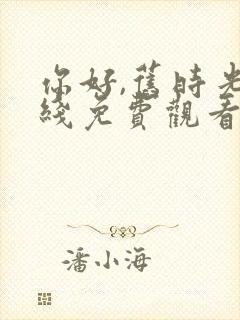 你好,舊時光
綫免費觀看
潘小海